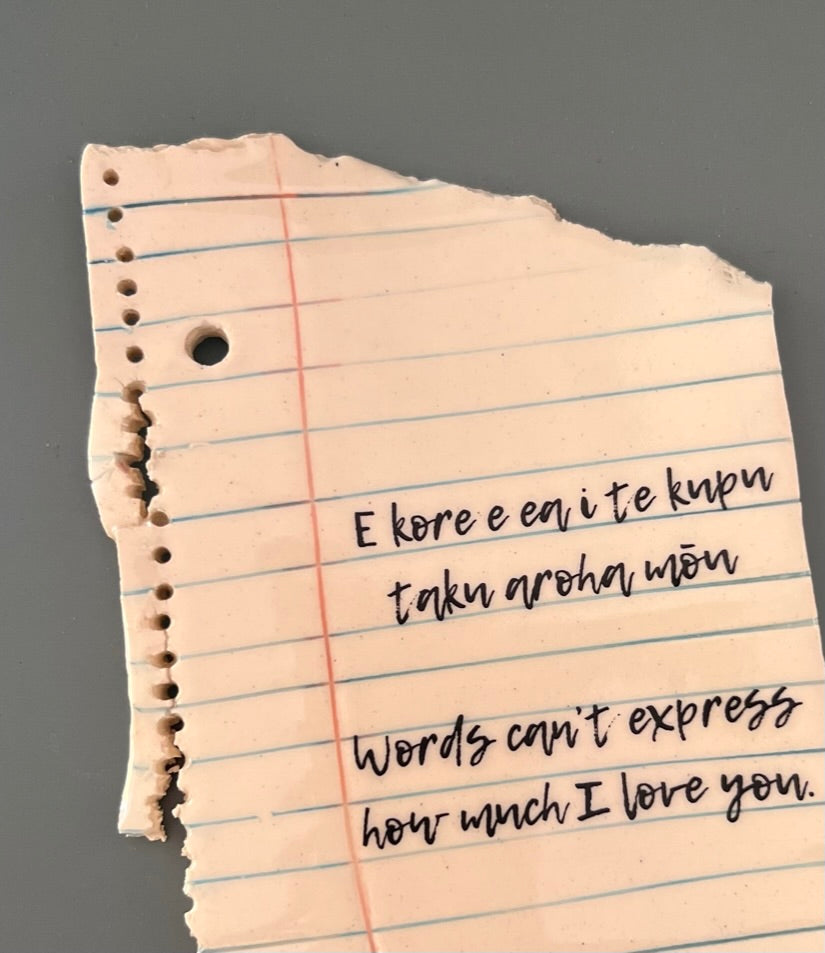 E kore e ea i te kupu
taku aroha mōu
Words can't express
how much I love you.